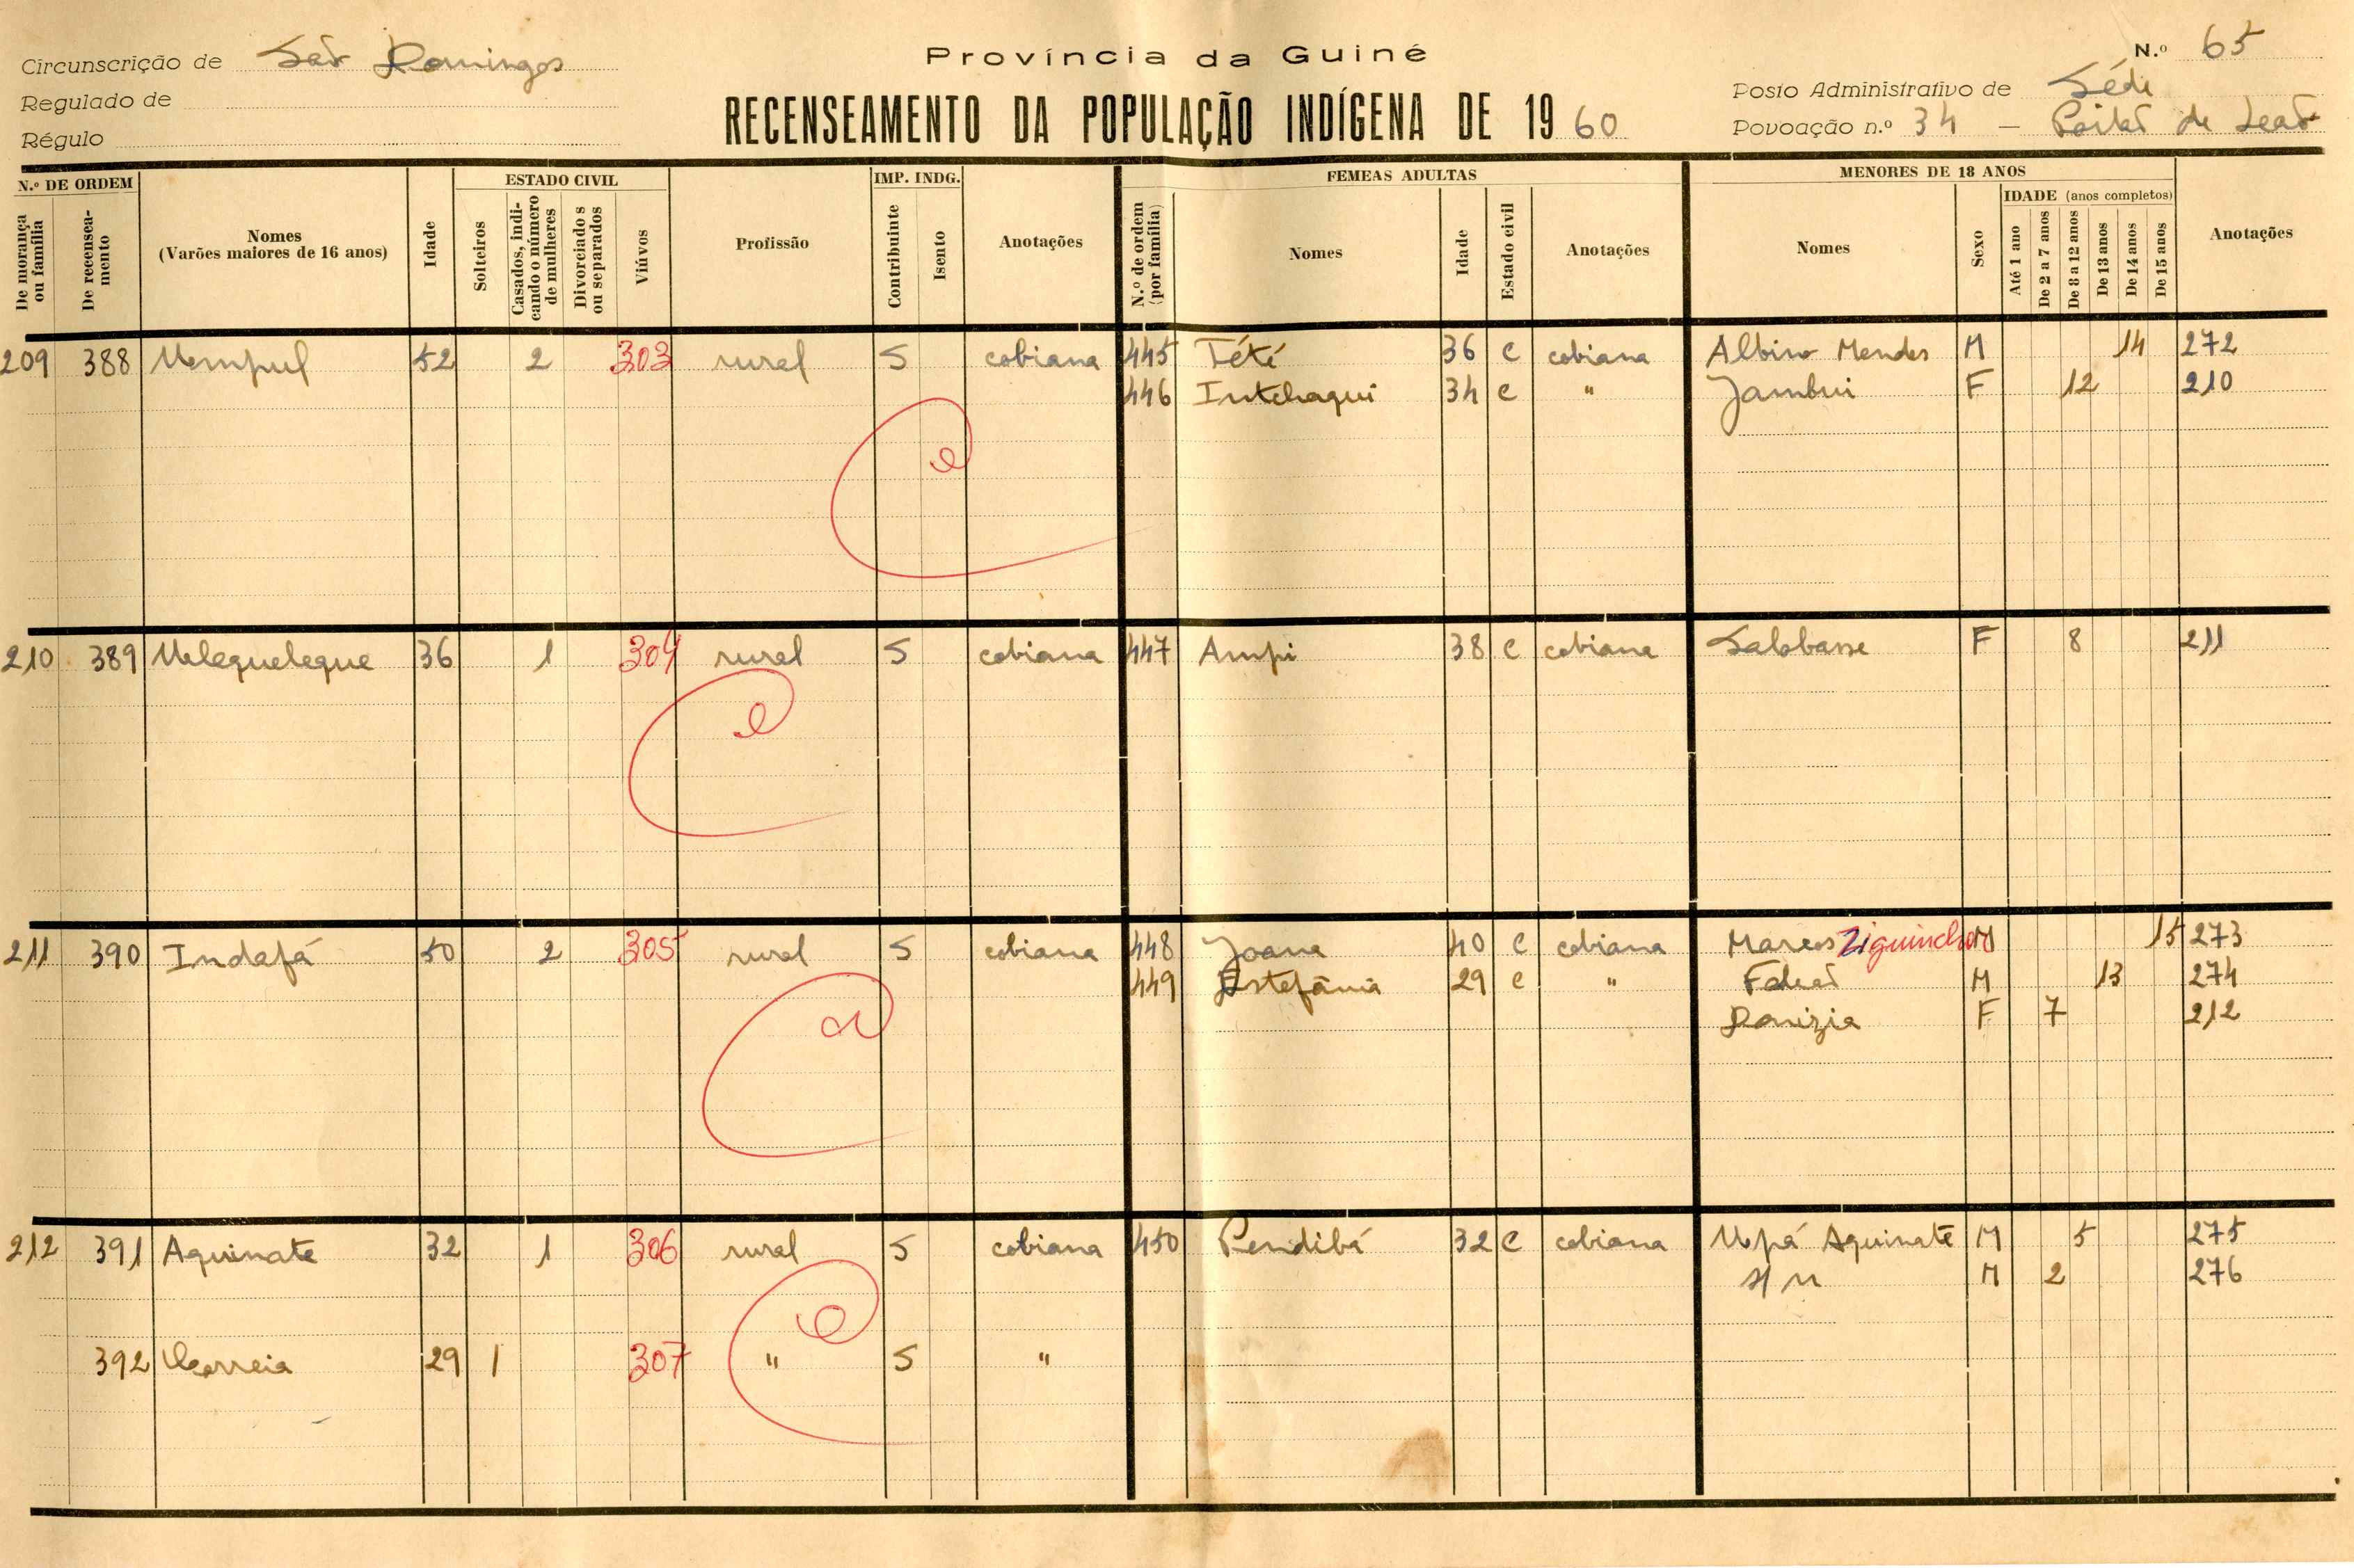 Província da Guiné
N.º 65
Circunscrição de São Domingos
Regulado de
Régulo
RECENSEAMENTO DA POPULAÇÃO INDÍGENA DE 1960
Posto Administrativo de Séde
Povoação n.º 34 — de Leão
N.º DE ORDEM
De morança ou família
De recensea- mento
Nomes
(Varões maiores de 16 anos)
Idade
ESTADO CIVIL
Solteiros
Casados, indi- cando o número de mulheres
Divorciados ou separados
Viúvos
Profissão
IMP. INDG.
Contribuinte
Isento
Anotações
FEMEAS ADULTAS
N.º de ordem (por família)
Nomes
Idade
Estado civil
Anotações
MENORES DE 18 ANOS
Nomes
Sexo
IDADE (anos completos)
Até 1 ano
De 2 a 7 anos
De 8 a 12 anos
De 13 anos
De 14 anos
De 15 anos
Anotações
209 388 52 2 303 rural S cobiana 445 Tété 36 c cobiana Albino Mendes M 14 272
446 Intchaqui 34 c " Jambui F 12 210
210 389 36 1 304 rural S cobiana 447 Ampi 38 c cobiana Salobasse F 8 211
211 390 Indafá 50 2 305 rural S cobiana 448 Joana 40 c cobiana Marcos Ziguinchor M 15 273
449 Estefânia 29 c " M 13 274
Donizia F 7 212
212 391 Aquinate 32 1 306 rural S cobiana 450 Pendibá 32 c cobiana Upá Aquinate M 5 275
s/n M 2 276
392 29 1 307 " S "